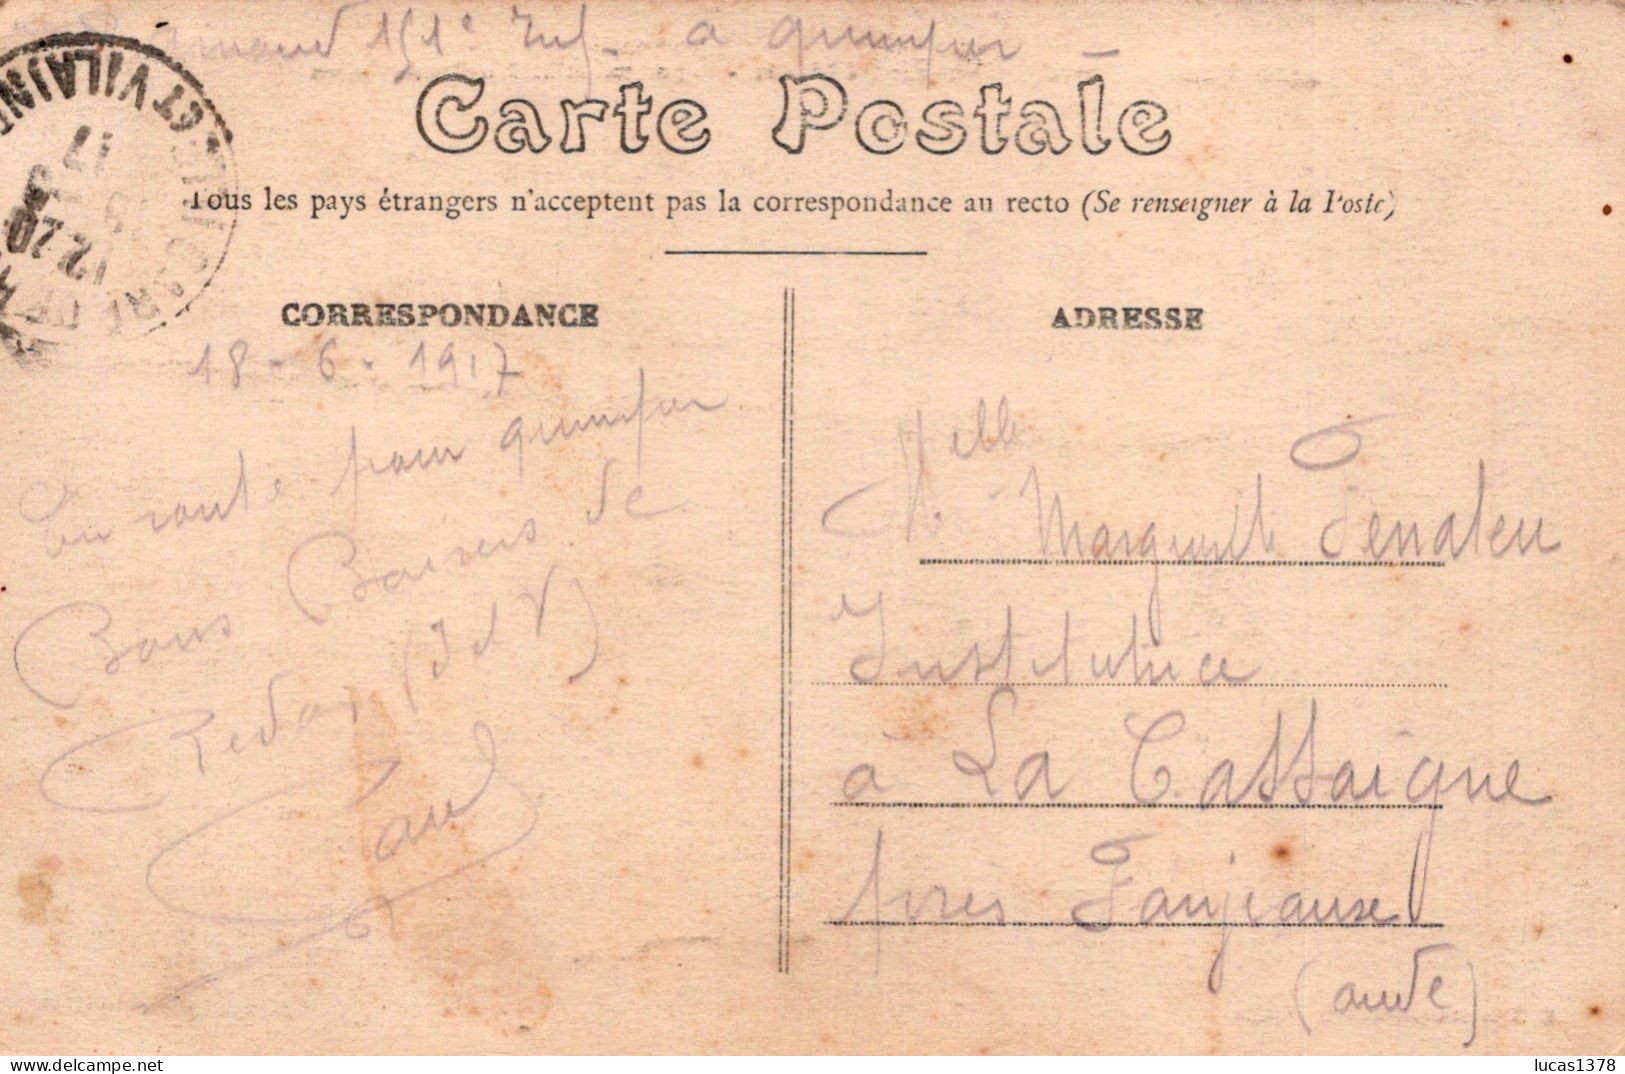 Arnaud 151e Inf. à Quimper -
Carte Postale
Tous les pays étrangers n'acceptent pas la correspondance au recto (Se renseigner à la Poste)
GARE DE
ET VILAINE
17
12 20
CORRESPONDANCE
18-6-1917
En route pour Quimper
Bons Baisers de
Redon (I et V)
Paul
ADRESSE
Melle Marguerite
Institutrice
à La Cassaigne
près Fanjeaux
(Aude)
lucas1378